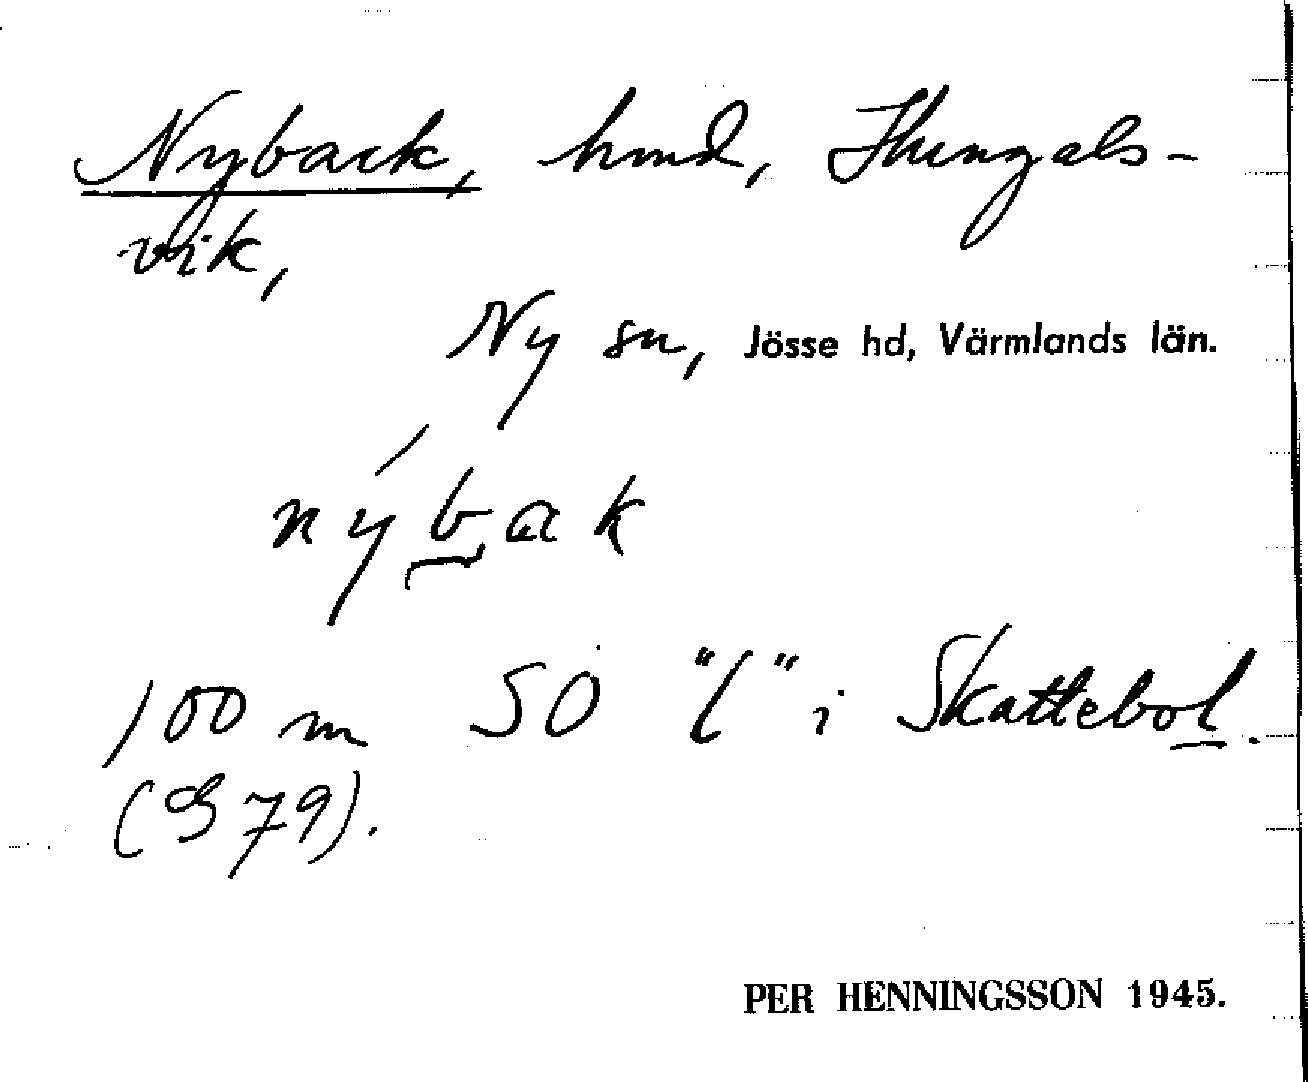 Nyback, hmd, Hungals-
vik,
Ny sn, Jösse hd, Värmlands län.
nýbak
100 m SO "l" i Skattebol.
(S 79).
PER HENNINGSSON 1945.